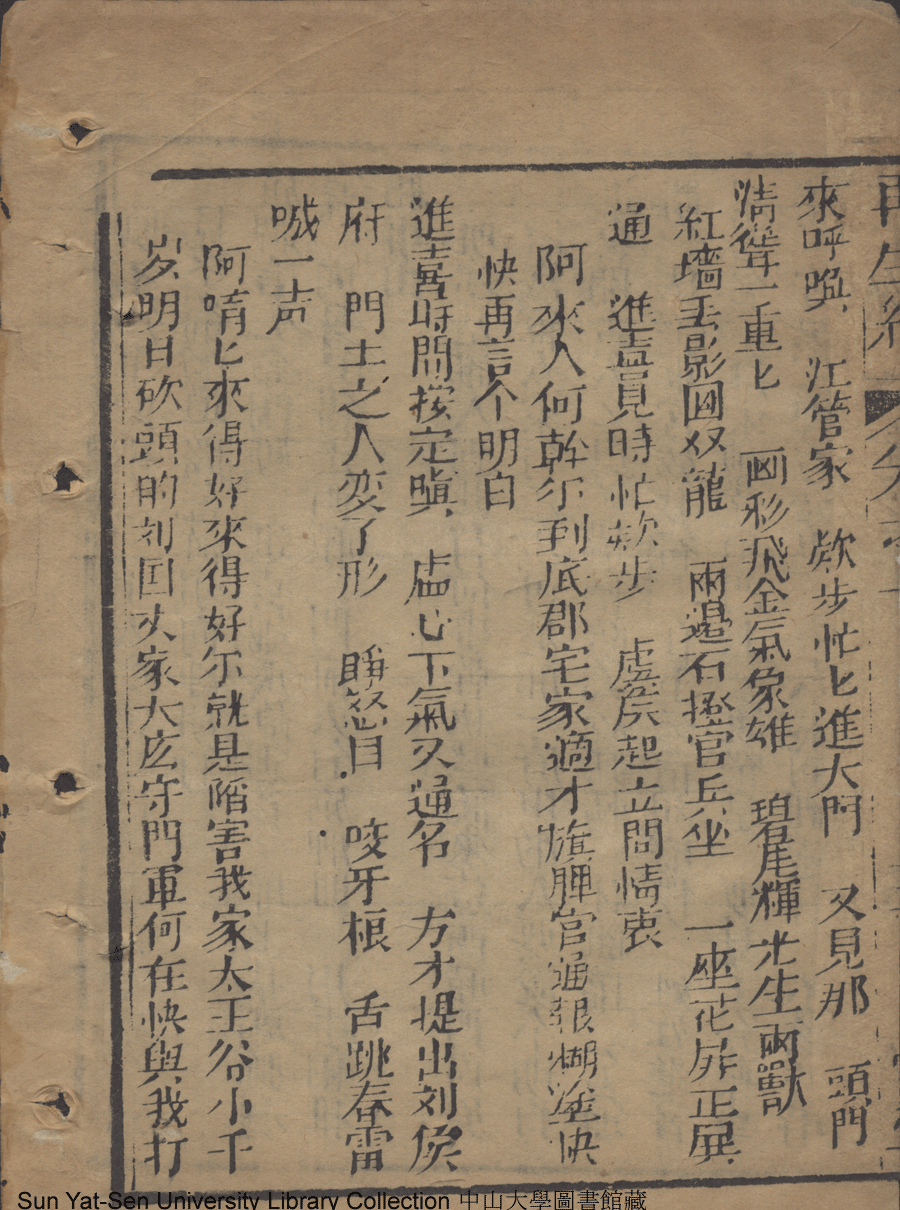 再生緣
來呼喚 江管家 欸步忙匕進大門 又見那 頭門
清聳一重匕 画彩飛金氣象雄 碧尾輝光生兩獸
紅墻丢影囬双龍 兩邉石櫈官兵坐 一座花屏正展
通 進喜見時忙欸步 虞侯起立問情衷
阿來人何幹尓到底郡宅家適才旗牌官通報糊塗快
快再言个明白
進喜時間按定嗔 虛心下氣又通名 方才提出刘侯
府 門士之人变了形 睜怒目 咬牙根 舌跳春雷
喊一声
阿唷匕來得好來得好尓就是陷害我家太王爷小千
岁明日砍頭的刘囯丈家大庒守門軍何在快與我打
Sun Yat-Sen University Library Collection 中山大學圖書館藏